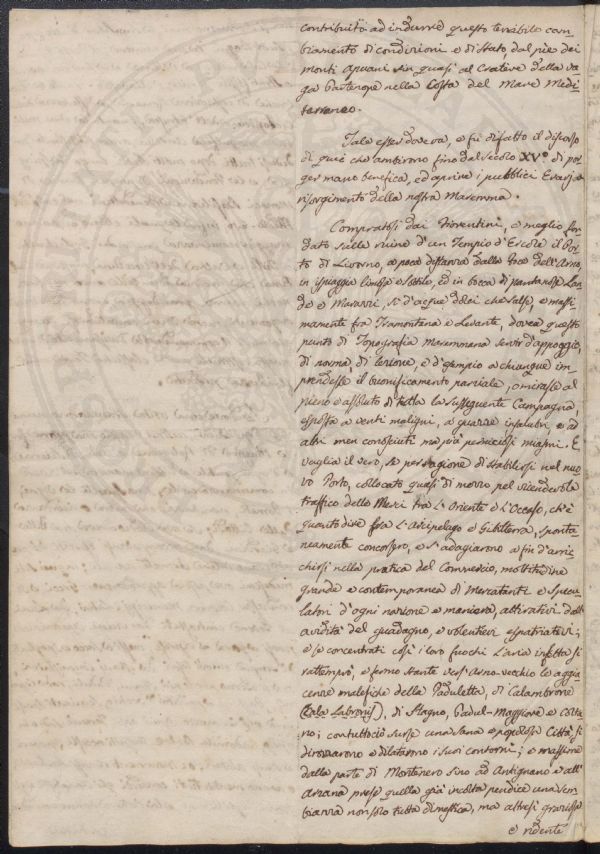 contribuito ad indurre questo terribile cam-
biamento di condizioni e di stato, dal piè dei
monti Apuani sin quasi al Cratère della va-
ga Partenope nella Costa del Mare Medi-
terraneo.
Tale esser doveva, e fù difatto il discorso
di quei che ambirono fino dal secolo XV.º di por-
ger mano benefica, ed aprire i pubblici Erarj a
risorgimento della nostra Maremma.
Compratosi dai Fiorentini, e meglio fon-
dato sulle ruine d'un Tempio d'Ercole il Por-
to di Livorno, a poca distanza dalla foce dell'Arno,
in ispiaggia limosa e sottile, ed in bocca di pantanose Lan-
de e Marazzi, sì d'acque dolci che salse, e massi-
mamente fra Tramontana e Levante, dovea questo
punto di Topografia Maremmana servir d'appoggio,
di norma di lezione, e d'esempio a chiunque im-
prendesse il bonificamento parziale, o mirasse al
pieno e assoluto di tutta la susseguente Campagna,
esposta a venti maligni, a guazze insalubri, e ad
altri men conosciuti ma più perniciosi miasmi. E
vaglia il vero, se per ragione di stabilirsi nel nuo-
vo Porto, collocato quasi di mezzo pel vicendevole
traffico delle Merci tra l'Oriente e l'Occaso, ch'è
quanto dire fra l'Arcipelago e Gibilterra, sponta-
neamente concorsero, e s'adagiarono a fin d'arric-
chirsi nella pratica del Commercio, moltitudine
grande e contemporanea di Mercatanti e Specu-
latori d'ogni nazione e maniera, attirativi dall'
avidità del guadagno, e volentieri espatriativi;
e se concentrati così i loro fuochi l'aria infetta si
rattemprò, e fermo stante vers'Arno-vecchio le aggia-
cenze malefiche della Paduletta, di Calambrone
(Cala Labronis), di Stagno, Padul-Maggiore e Colta-
no; contuttociò surse una sana e popolosa Città, si
dirozzarono e dilatarono i suoi contorni; e massime
dalla parte di Montenero sino ad Antignano e all'
Arzana prese quella già incolta pendice una sem-
bianza non solo tutta dimestica, ma altresì graziosa
e ridente